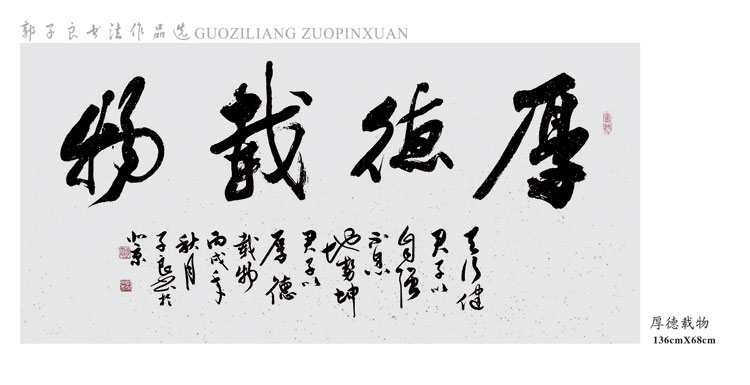 郭子良书法作品选GUOZILIANG ZUOPINXUAN
厚德載物
天行健
君子以
自强
不息
地势坤
君子以
厚德
載物
丙戌年
秋月
子良书於
北京
厚德载物
136cmX68cm